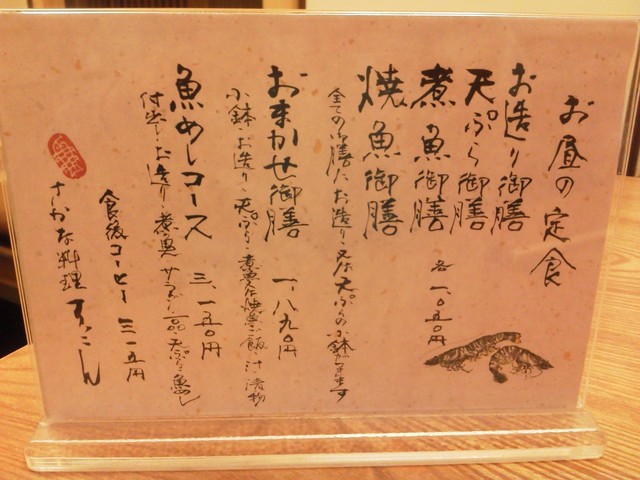 お昼の定食
お造り御膳
天ぷら御膳
煮魚御膳 各一、〇五〇円
焼魚御膳
全ての御膳にお造り又は天ぷらの小鉢が付きます
おまかせ御膳 一、八九〇円
小鉢・お造り・天ぷら・煮魚又は焼魚・御飯・汁・漬物
魚めしコース 三、一五〇円
付出し・お造り・煮魚・サラダ・一品・天ぷら・魚めし
食後コーヒー 三一五円
さかな料理